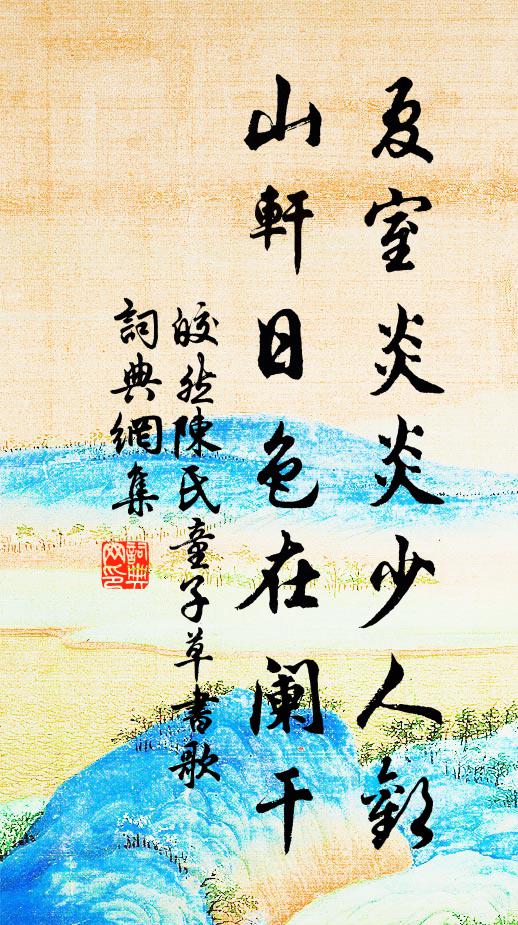 夏室炎炎少人歡
山軒日色在闌干
皎然陳氏童子草書歌
詞典網集
詞典
网印